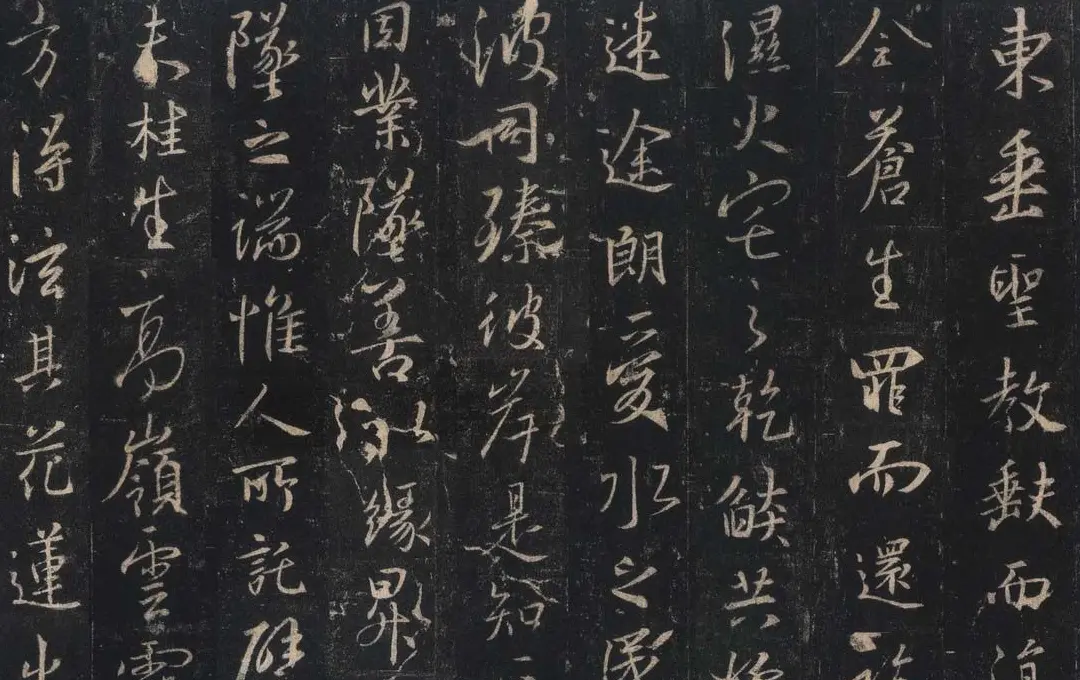 東垂聖教缺而復
全蒼生罪而還福
濕火宅之乾燄共拔
迷途朗愛水之昏
波同臻彼岸是知
因業墜善以緣昇
墜之端惟人所託譬
夫桂生高嶺雲露
方得泫其花蓮出